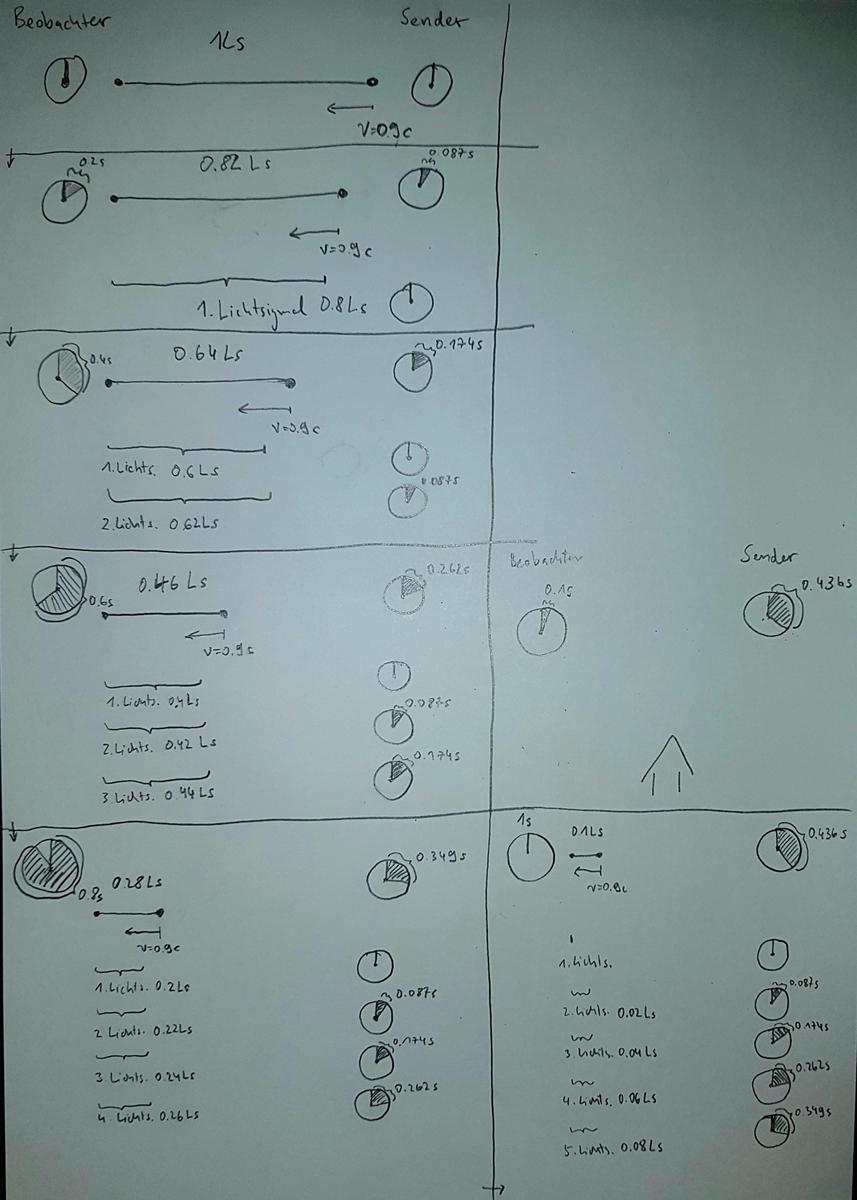 Beobachter
Sender
1Ls
V=0.9c
0.2s
0.82 Ls
0.087s
V=0.9c
1. Lichtsignal 0.8Ls
0.4s
0.64 Ls
0.174s
V=0.9c
1. Lichts. 0.6Ls
0.087s
2. Lichts. 0.62Ls
0.6s
0.46 Ls
0.262s
V=0.9s
1. Lichts. 0.4Ls
0.087s
2. Lichts. 0.42 Ls
0.174s
3. Lichts. 0.44Ls
Beobachter
Sender
0.1s
0.436s
0.8s
0.28Ls
0.349s
V=0.9c
1. Lichts. 0.2Ls
0.087s
2 Lichts. 0.22Ls
0.174s
3 Lichts. 0.24Ls
0.262s
4. Lichts. 0.26Ls
1s
0.1Ls
0.436s
V=0.9c
1. Lichts.
0.087s
2. Lichts. 0.02Ls
0.174s
3. Lichts. 0.04Ls
0.262s
4. Lichts. 0.06Ls
0.349s
5. Lichts. 0.08Ls